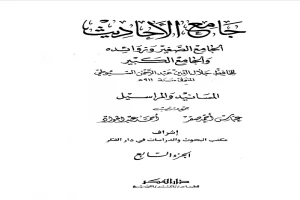 جامع الأحاديث
الجامع الصغير وزوائده
والجامع الكبير
للحافظ جلال الدين عبد الرحمن السيوطي
المتوفى سنة ٩١١هـ
المسانيد والمراسيل
عباس أحمد صقر أحمد عبد الجواد
إشراف
مكتب البحوث والدراسات في دار الفكر
الجزء السابع
دار الفكر